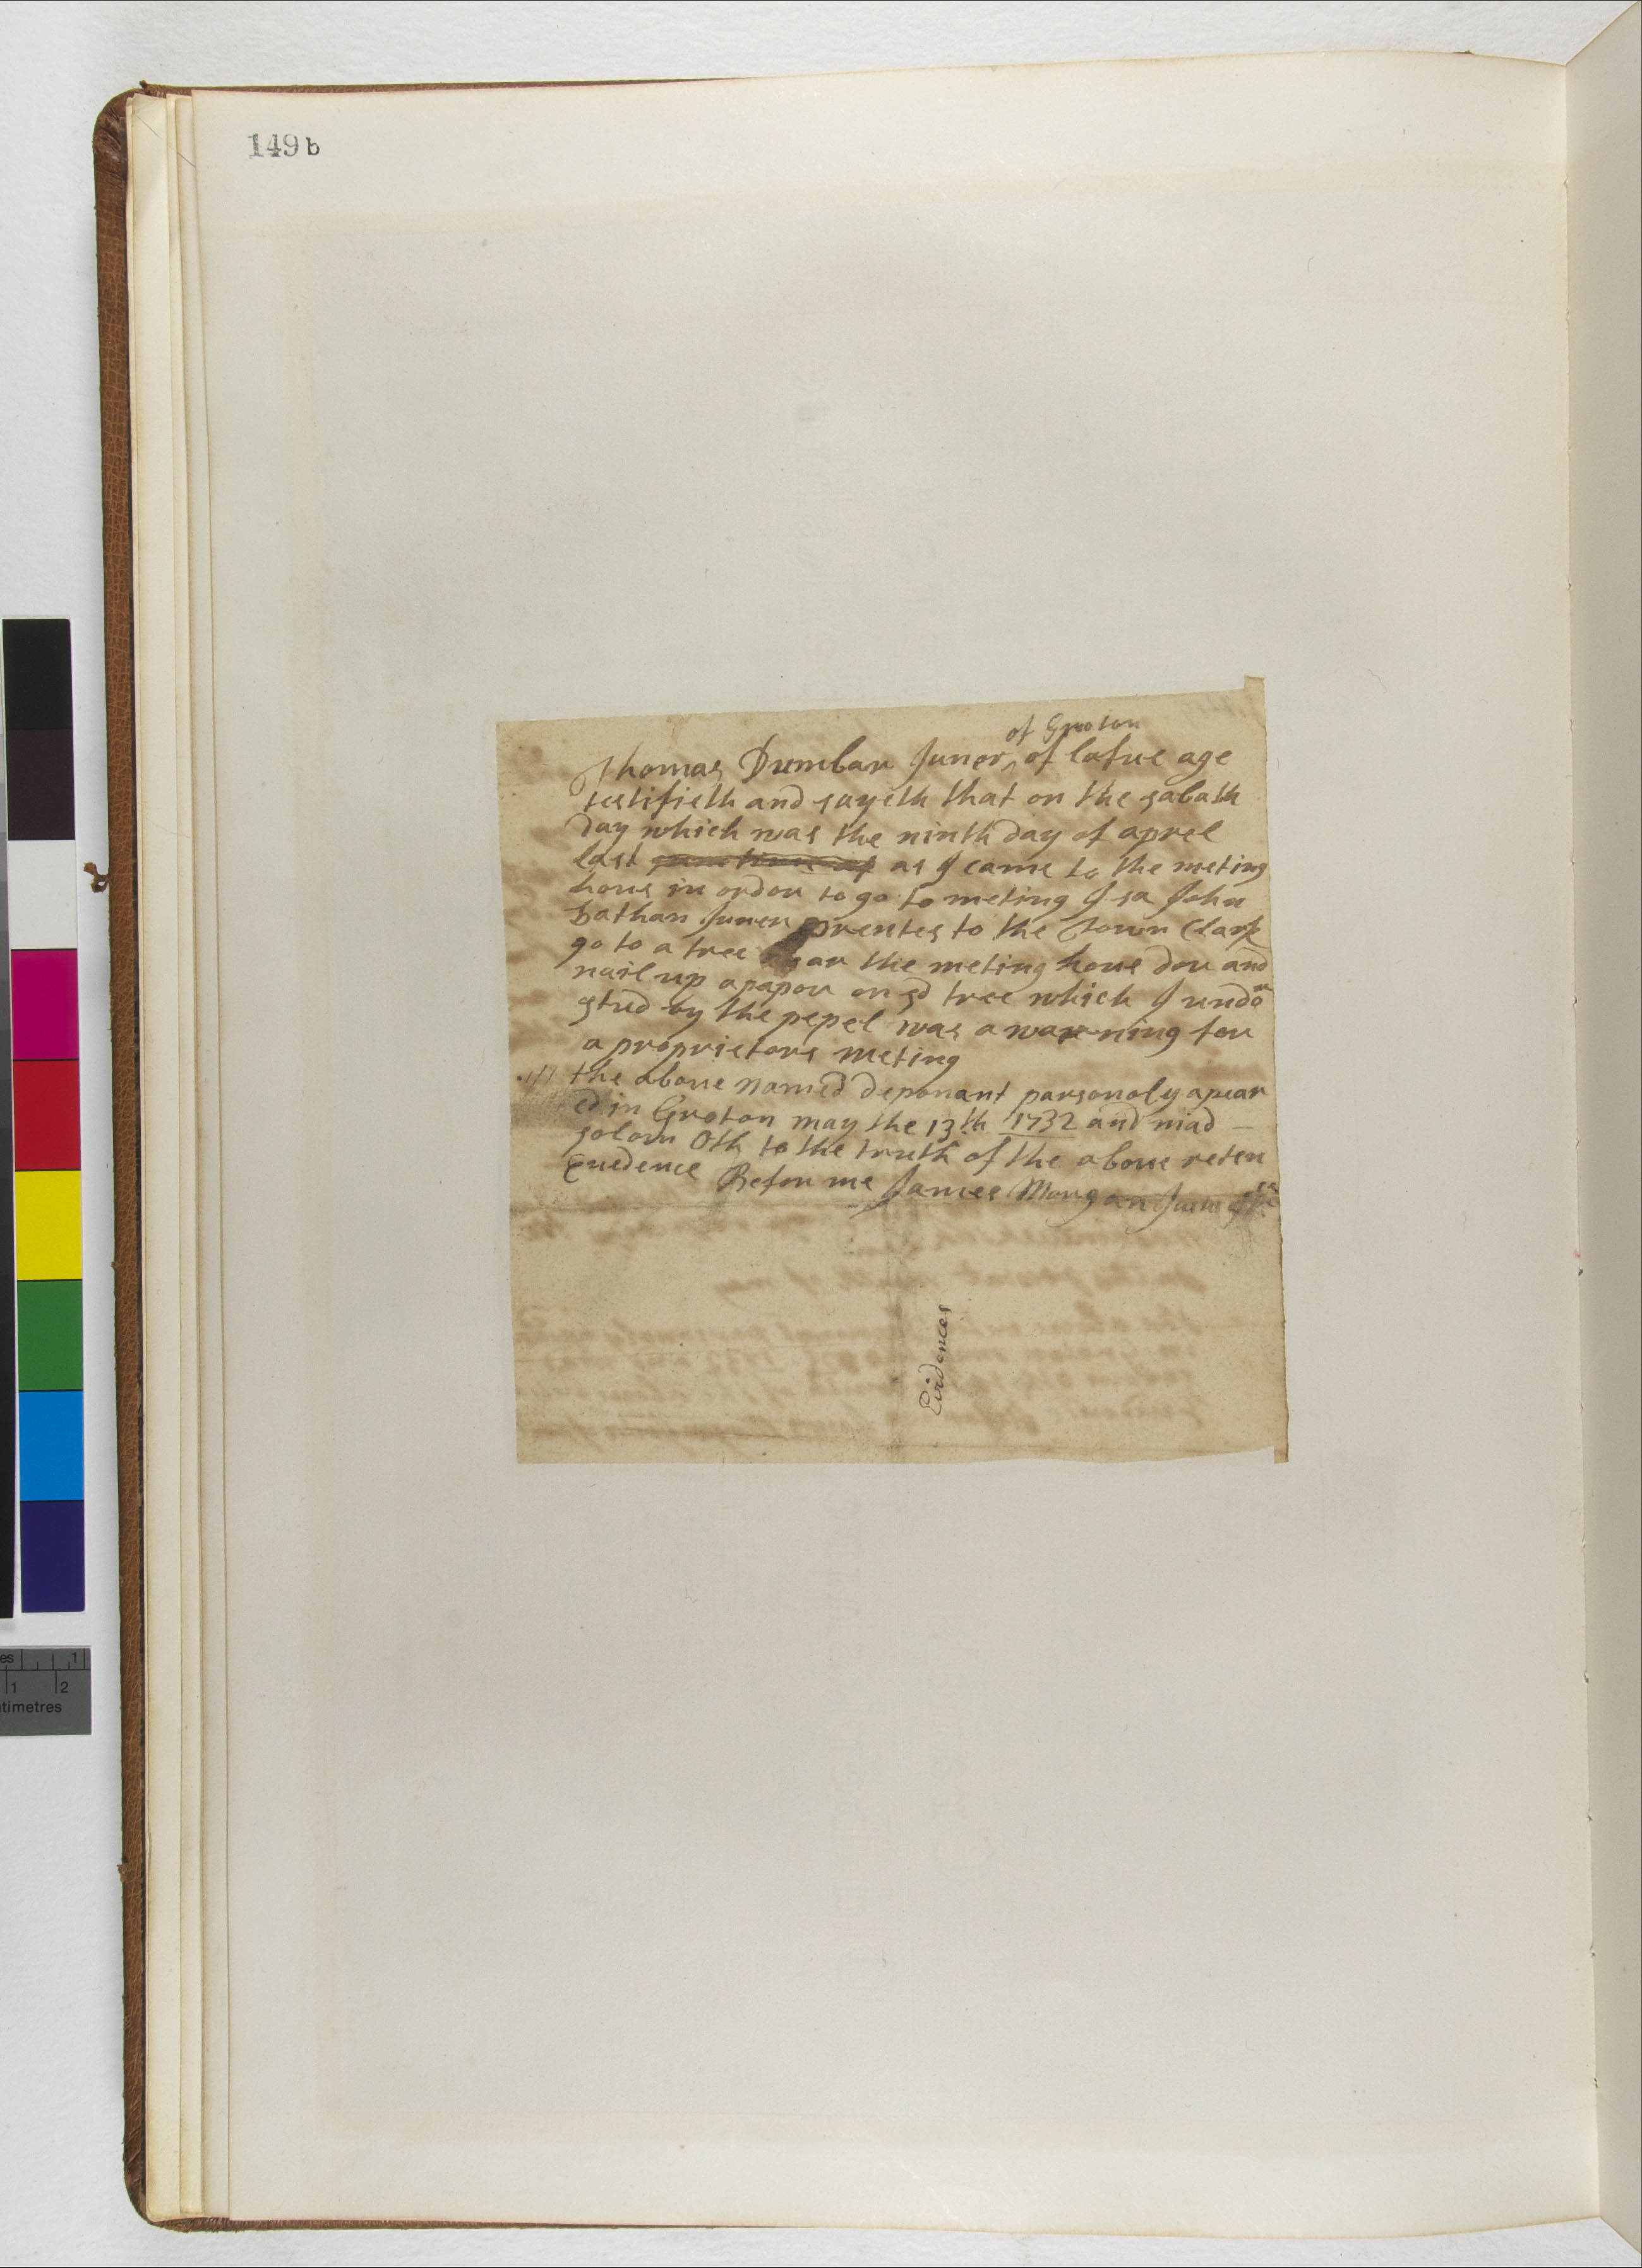 149b
of Groton
Thomas Dumbar Juner ^ of lafue age
testifieth and sayeth that on the sabath
day which was the ninth day of aprel
last as I came to the meting
hous in order to go to meting I sa John
Juner prentes to the Town Clark
go to a tree near the meting hous dor and
nail up apapor on sd tree which I undor
stud by the pepel was a warning for
a proprietors meting
the above named deponant parsonoly apear
ed in Groton may the 13th 1732 and mad
solom Oth to the truth of the above reten
Evedence Befor me James Morgan Just
Evidences
es 1
1 2
timetres